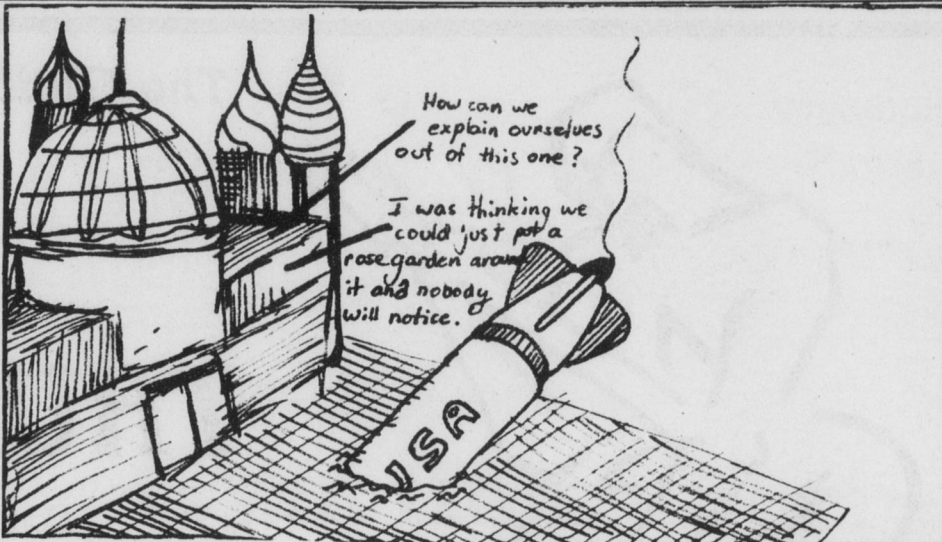 How can we
explain ourselves
out of this one?
I was thinking we
could just put a
rose garden around
it and nobody
will notice.
USA